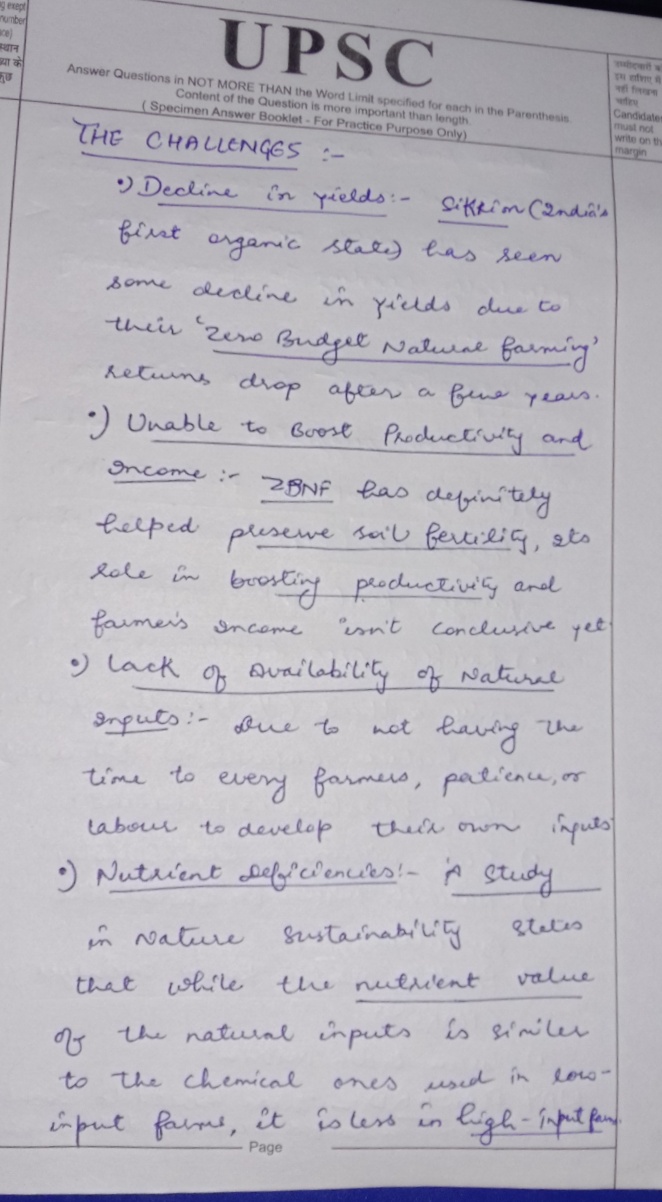 g exept
number
ce)
स्थान
ख्या के
कुछ
UPSC
Answer Questions in NOT MORE THAN the Word Limit specified for each in the Parenthesis.
Content of the Question is more important than length.
( Specimen Answer Booklet - For Practice Purpose Only)
उम्मीदवारों को
इस हाशिए में
नहीं लिखना
चाहिए
Candidates
must not
write on the
margin
THE CHALLENGES :-
•) Decline in yields:- Sikkim (India's
first organic state) has seen
some decline in yields due to
their 'Zero Budget Natural farming'
returns drop after a few years.
•) Unable to Boost Productivity and
Income :- ZBNF has definitely
helped preserve soil fertility, its
role in boosting productivity and
farmer's income isn't conclusive yet
•) Lack of Availability of Natural
Inputs:- Due to not having the
time to every farmers, patience, or
labour to develop their own inputs
•) Nutrient Deficiencies:- A Study
in Nature Sustainability states
that while the nutrient value
of the natural inputs is similar
to the chemical ones used in low-
input farms, it is less in high-input farms.
Page